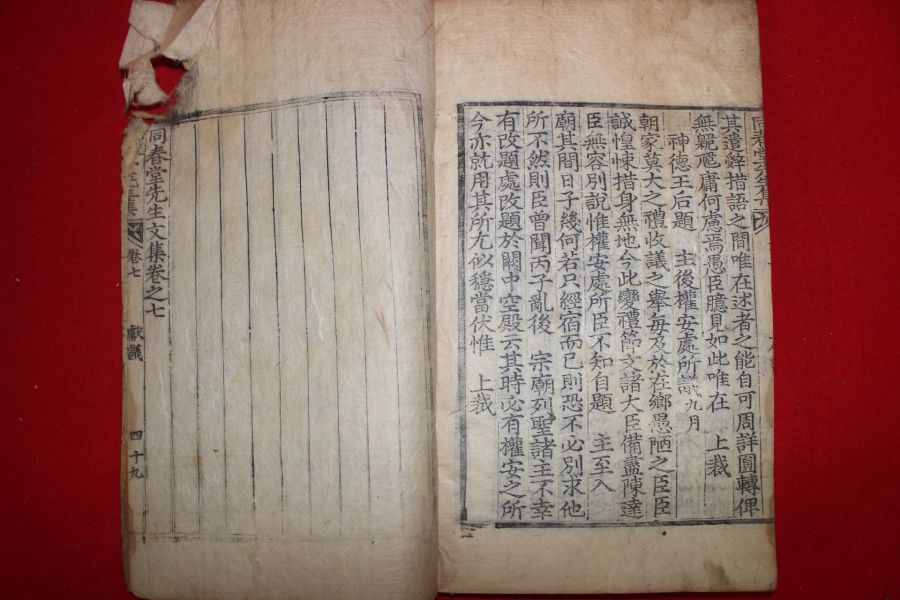 其遣辭措語之間唯在述者之能自可周詳圓轉俾
無臲卼庸何慮焉愚臣臆見如此唯在 上裁
神德王后題 主後權安處所議九月
朝家莫大之禮收議之擧每及於在鄕愚陋之臣臣
誠惶悚措身無地今此變禮節文諸大臣備盡陳達
臣無容別說惟權安處所臣不知自題 主至入
廟其間日子幾何若只經宿而已則恐不必別求他
所不然則臣曾聞丙子亂後 宗廟列聖諸主不幸
有改題處改題於闕中空殿云其時必有權安之所
今亦就用其所尤似穩當伏惟 上裁
同春堂先生文集卷之七
卷七
獻議
四十九